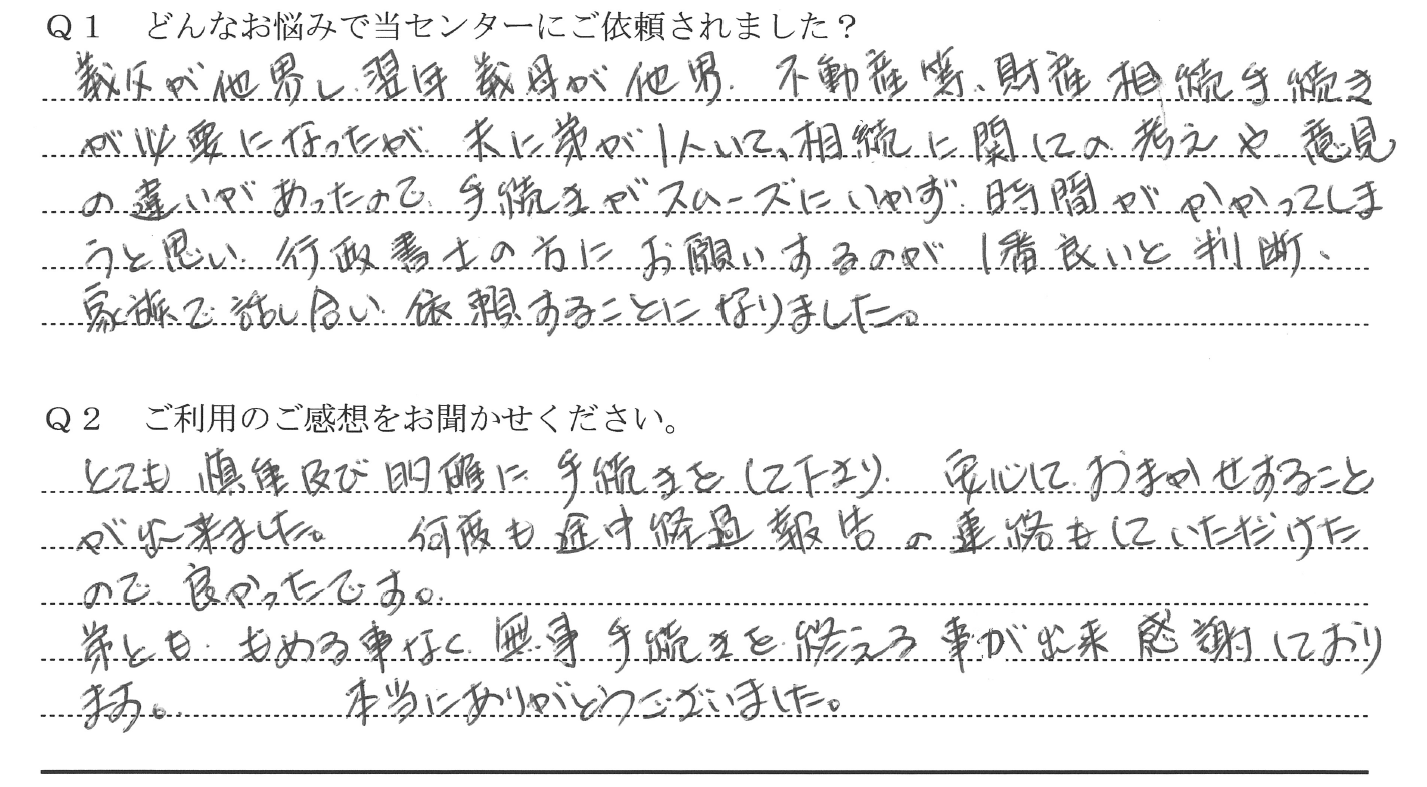 Q1 どんなお悩みで当センターにご依頼されました?
義父が他界し、翌年 義母が他界. 不動産等、財産相続手続き
が必要になったが、夫に弟が1人いて、相続に関しての考えや意見
の違いがあったので、手続きがスムーズにいかず、時間がかかってしま
うと思い、行政書士の方にお願いするのが1番良いと判断、
家族で話し合い、依頼することになりました。
Q2 ご利用のご感想をお聞かせください。
とても慎重及び明確に手続きをして下さり、安心しておまかせすること
が出来ました。 何度も途中経過報告の連絡もしていただけた
ので、良かったです。
弟とも、もめる事なく、無事手続きを終える事が出来 感謝しており
ます。 本当にありがとうございました。